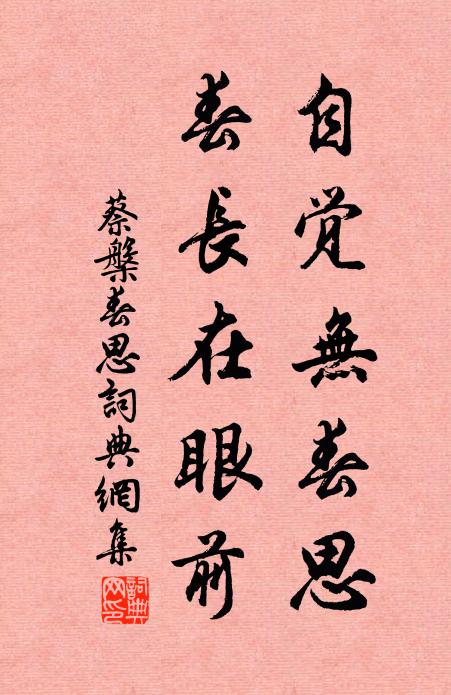 自覚無春思
春長在眼前
蔡槃春思詞典網集
詞典網印